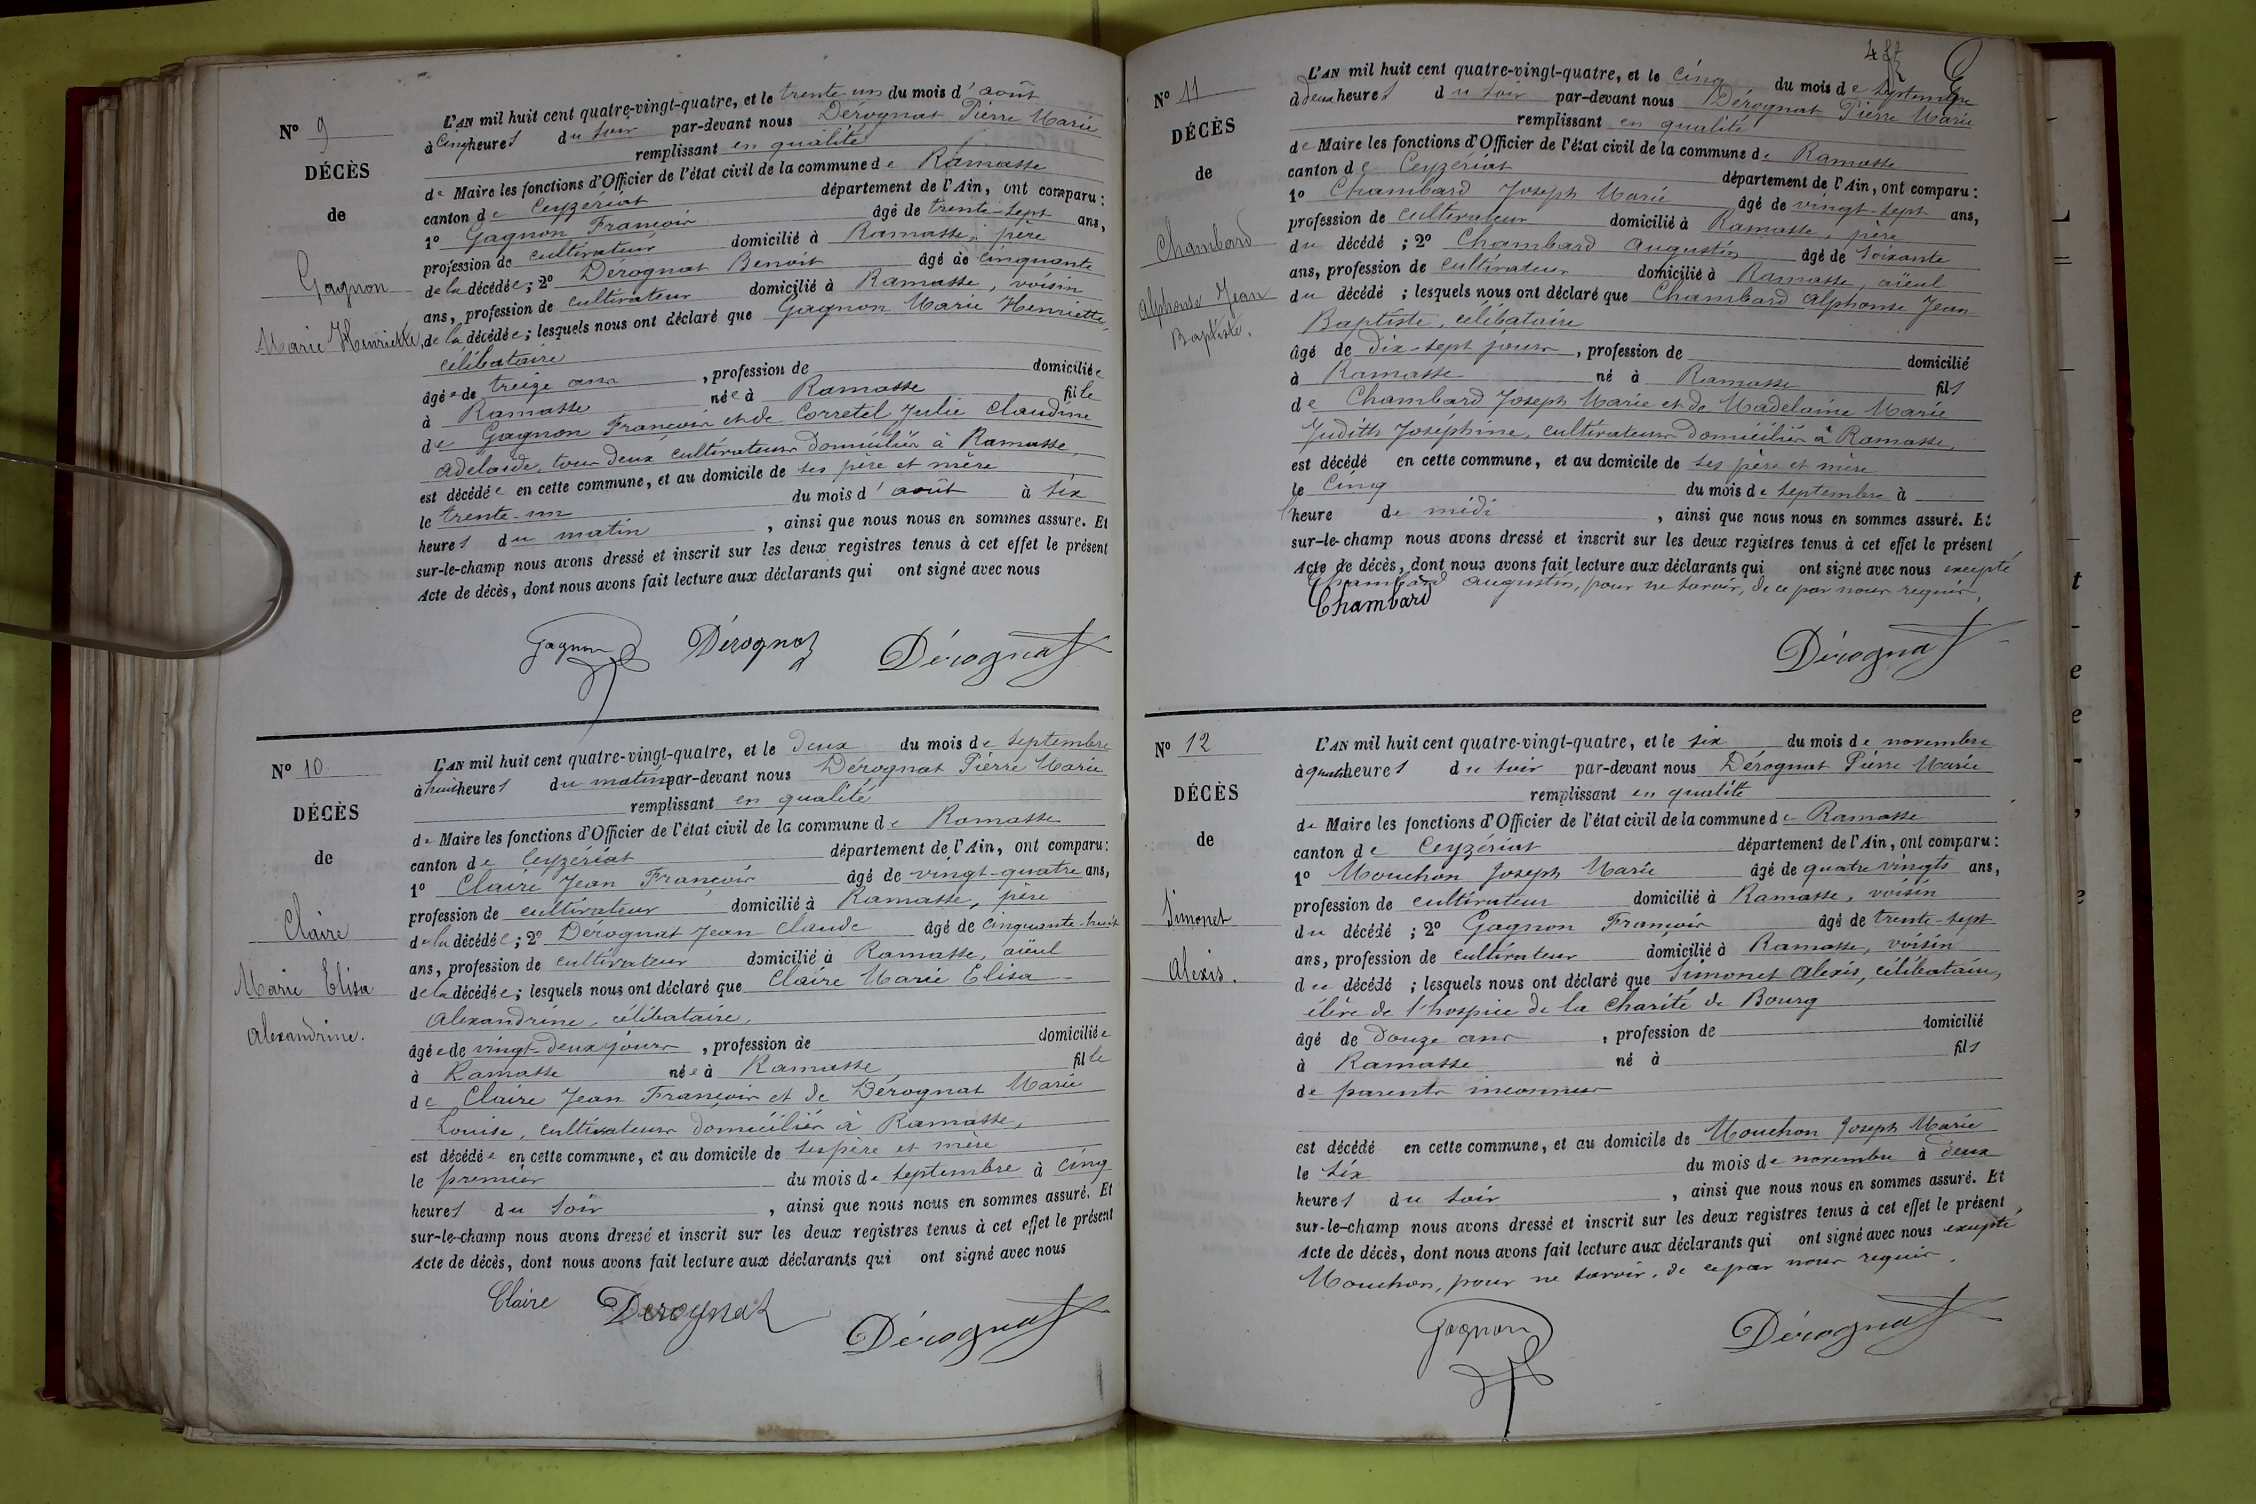 N° 9
DÉCÈS
de
Gagnon
Marie Henriette,
L'AN mil huit cent quatre-vingt-quatre, et le trente-un du mois d'août
à cinq heures du soir par-devant nous Dérognat Pierre Marie
remplissant en qualité
de Maire les fonctions d'Officier de l'état civil de la commune de Ramasse
canton de Ceyzériat département de l'Ain, ont comparu :
1° Gagnon François âgé de trente-sept ans,
profession de cultivateur domicilié à Ramasse, père
de la décédée ; 2° Dérognat Benoit âgé de cinquante
ans, profession de cultivateur domicilié à Ramasse, voisin
de la décédée ; lesquels nous ont déclaré que Gagnon Marie Henriette,
célibataire
âgée de treize ans , profession de domiciliée
à Ramasse née à Ramasse fille
de Gagnon François et de Corretel Julie Claudine
Adelaïde, tous deux cultivateurs domiciliés à Ramasse,
est décédée en cette commune, et au domicile de ses père et mère
le trente-un du mois d'août à six
heures du matin , ainsi que nous nous en sommes assuré. Et
sur-le-champ nous avons dressé et inscrit sur les deux registres tenus à cet effet le présent
Acte de décès, dont nous avons fait lecture aux déclarants qui ont signé avec nous
Gagnon Dérognat Dérognat
N° 10
DÉCÈS
de
Claire
Marie Elisa
Alexandrine.
L'AN mil huit cent quatre-vingt-quatre, et le deux du mois de septembre
à huit heures du matin par-devant nous Dérognat Pierre Marie
remplissant en qualité
de Maire les fonctions d'Officier de l'état civil de la commune de Ramasse
canton de Ceyzériat département de l'Ain, ont comparu :
1° Claire Jean François âgé de vingt-quatre ans,
profession de cultivateur domicilié à Ramasse, père
de la décédée ; 2° Dérognat Jean Claude âgé de cinquante-huit
ans, profession de cultivateur domicilié à Ramasse, aïeul
de la décédée ; lesquels nous ont déclaré que Claire Marie Elisa
Alexandrine, célibataire,
âgée de vingt-deux jours , profession de domiciliée
à Ramasse née à Ramasse fille
de Claire Jean François et de Dérognat Marie
Louise, cultivateurs domiciliés à Ramasse,
est décédée en cette commune, et au domicile de ses père et mère
le premier du mois de septembre à cinq
heures du soir , ainsi que nous nous en sommes assuré. Et
sur-le-champ nous avons dressé et inscrit sur les deux registres tenus à cet effet le présent
Acte de décès, dont nous avons fait lecture aux déclarants qui ont signé avec nous
Claire Derognat Dérognat
N° 11
DÉCÈS
de
Chambard
Alphonse Jean
Baptiste.
L'AN mil huit cent quatre-vingt-quatre, et le cinq du mois de septembre
à deux heures du soir par-devant nous Dérognat Pierre Marie
remplissant en qualité
de Maire les fonctions d'Officier de l'état civil de la commune de Ramasse
canton de Ceyzériat département de l'Ain, ont comparu :
1° Chambard Joseph Marie âgé de vingt-sept ans,
profession de cultivateur domicilié à Ramasse, père
du décédé ; 2° Chambard Augustin âgé de soixante
ans, profession de cultivateur domicilié à Ramasse, aïeul
du décédé ; lesquels nous ont déclaré que Chambard Alphonse Jean
Baptiste, célibataire
âgé de dix-sept jours , profession de domicilié
à Ramasse né à Ramasse fils
de Chambard Joseph Marie et de Madelaine Marie
Judith Joséphine, cultivateurs domiciliés à Ramasse,
est décédé en cette commune, et au domicile de ses père et mère
le cinq du mois de septembre à
l'heure de midi , ainsi que nous nous en sommes assuré. Et
sur-le-champ nous avons dressé et inscrit sur les deux registres tenus à cet effet le présent
Acte de décès, dont nous avons fait lecture aux déclarants qui ont signé avec nous excepté
Chambard Augustin, pour ne savoir, de ce par nous requis.
Chambard
Dérognat
N° 12
DÉCÈS
de
Simonet
Alexis.
L'AN mil huit cent quatre-vingt-quatre, et le six du mois de novembre
à quatre heures du soir par-devant nous Dérognat Pierre Marie
remplissant en qualité
de Maire les fonctions d'Officier de l'état civil de la commune de Ramasse
canton de Ceyzériat département de l'Ain, ont comparu :
1° Mouchon Joseph Marie âgé de quatre vingts ans,
profession de cultivateur domicilié à Ramasse, voisin
du décédé ; 2° Gagnon François âgé de trente-sept
ans, profession de cultivateur domicilié à Ramasse, voisin
du décédé ; lesquels nous ont déclaré que Simonet Alexis, célibataire,
élève de l'hospice de la Charité de Bourg
âgé de douze ans , profession de domicilié
à Ramasse né à fils
de parents inconnus
est décédé en cette commune, et au domicile de Mouchon Joseph Marie
le six du mois de novembre à deux
heures du soir , ainsi que nous nous en sommes assuré. Et
sur-le-champ nous avons dressé et inscrit sur les deux registres tenus à cet effet le présent
Acte de décès, dont nous avons fait lecture aux déclarants qui ont signé avec nous excepté
Mouchon, pour ne savoir, de ce par nous requis.
Gagnon Dérognat